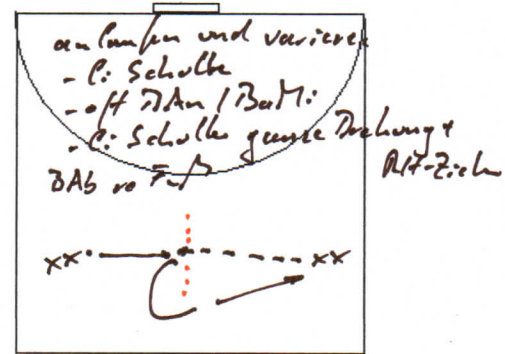 anlaufen und variieren
- li Schulter
- off BAn / BaMi
- li Schulter ganze Drehung +
RH-Zieh
BAb re Fuß
xx
xx